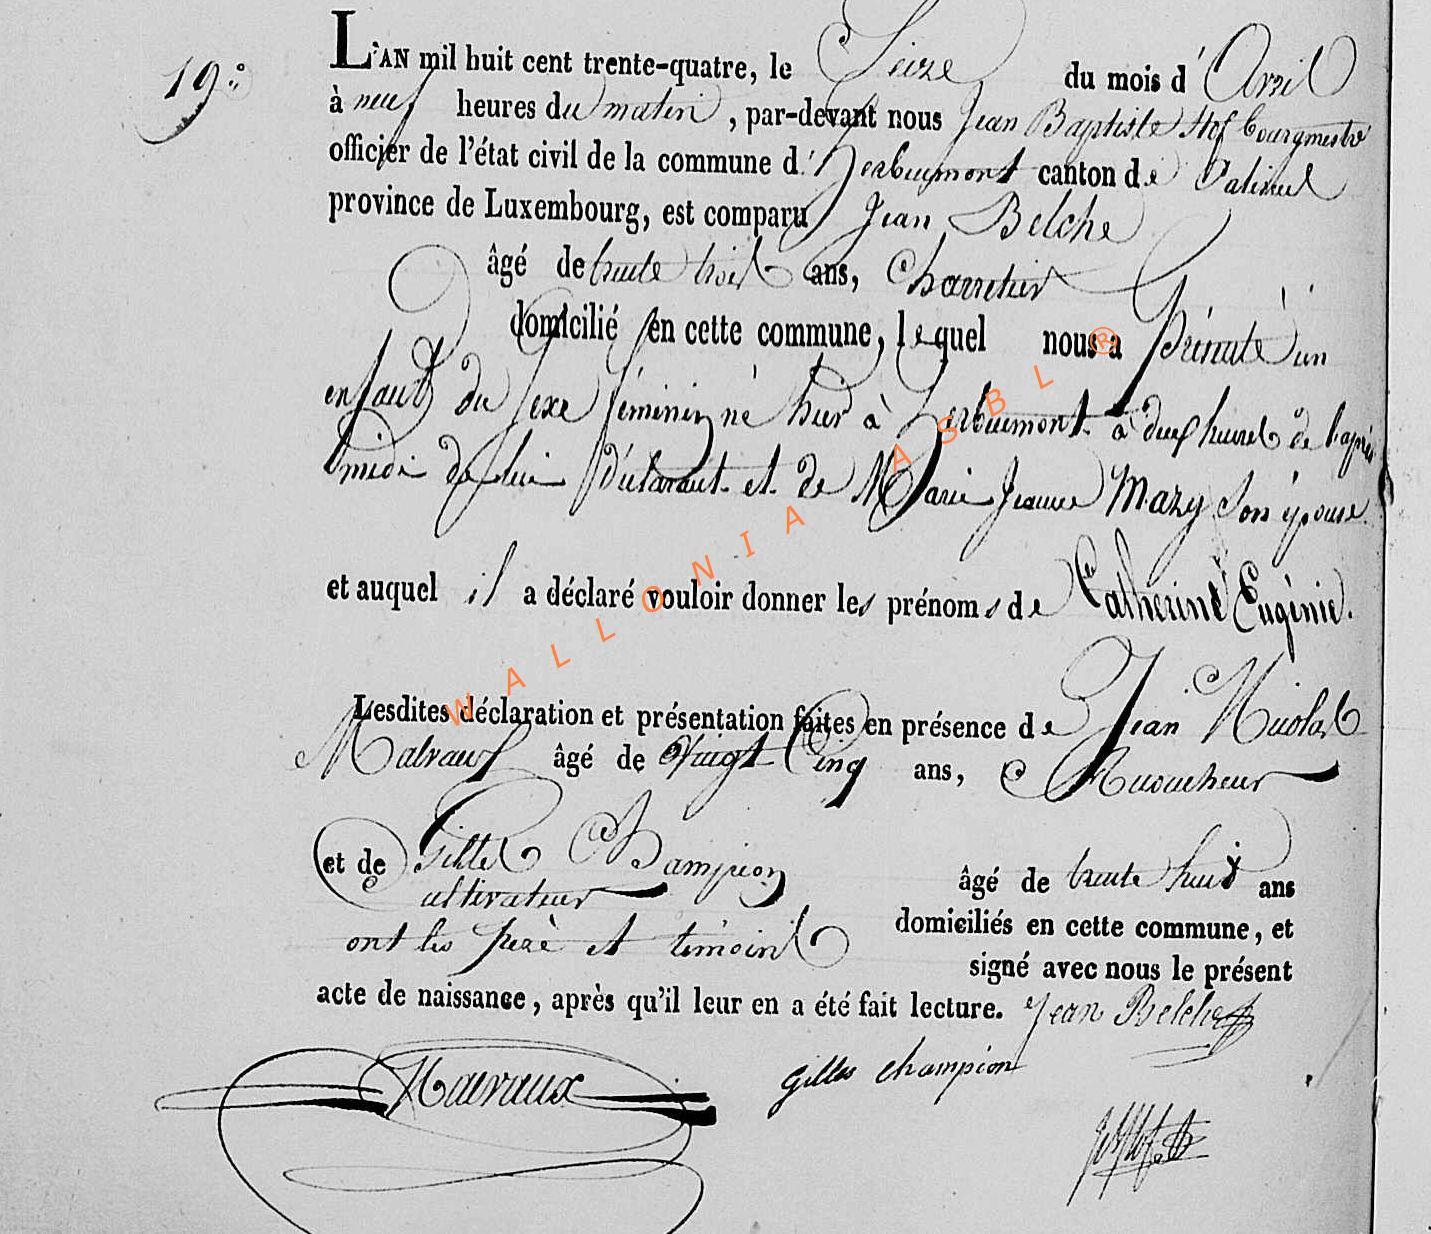 19.°
L'AN mil huit cent trente-quatre, le Seize du mois d'Avril
à neuf heures du matin, par-devant nous Jean Baptiste Hof bourgmestre
officier de l'état civil de la commune d'herbeumont canton de Paliseul
province de Luxembourg, est comparu Jean Belche
âgé de trente trois ans, Charretier
domicilié en cette commune, lequel nous a Présenté un
enfant du sexe féminin né hier à herbeumont à deux heures de l'après
midi de lui Déclarant et de Marie Jeanne Mazy son épouse.
et auquel il a déclaré vouloir donner les prénoms de Catherine Eugénie.
Lesdites déclaration et présentation faites en présence de Jean Nicolas
Malvaux âgé de vingt Cinq ans,
et de Gilles Champion âgé de trente huit ans
cultivateur domiciliés en cette commune, et
ont les père et témoins signé avec nous le présent
acte de naissance, après qu'il leur en a été fait lecture. Jean Belche
Malvaux gilles champion
WALLONIA ASBL ®